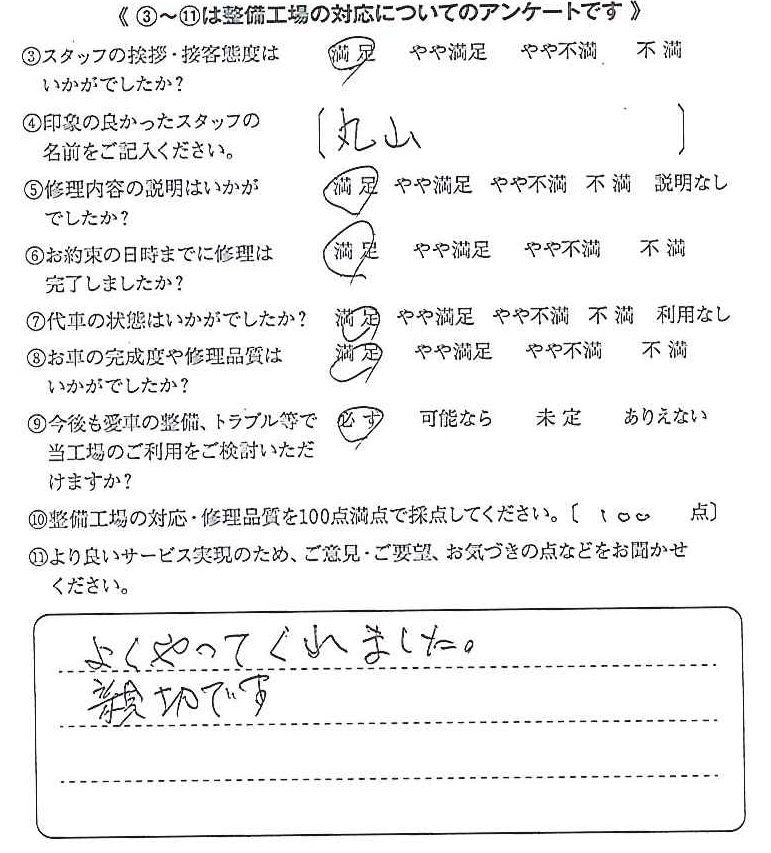 《 ③～⑪は整備工場の対応についてのアンケートです 》
③スタッフの挨拶・接客態度は 満 足 やや満足 やや不満 不 満
いかがでしたか?
④印象の良かったスタッフの 〔丸山 〕
名前をご記入ください。
⑤修理内容の説明はいかが 満 足 やや満足 やや不満 不 満 説明なし
でしたか?
⑥お約束の日時までに修理は 満 足 やや満足 やや不満 不 満
完了しましたか?
⑦代車の状態はいかがでしたか? 満 足 やや満足 やや不満 不 満 利用なし
⑧お車の完成度や修理品質は 満 足 やや満足 やや不満 不 満
いかがでしたか?
⑨今後も愛車の整備、トラブル等で 必 ず 可能なら 未 定 ありえない
当工場のご利用をご検討いただ
けますか?
⑩整備工場の対応・修理品質を100点満点で採点してください。〔 100 点〕
⑪より良いサービス実現のため、ご意見・ご要望、お気づきの点などをお聞かせ
ください。
よくやってくれました。
親切です